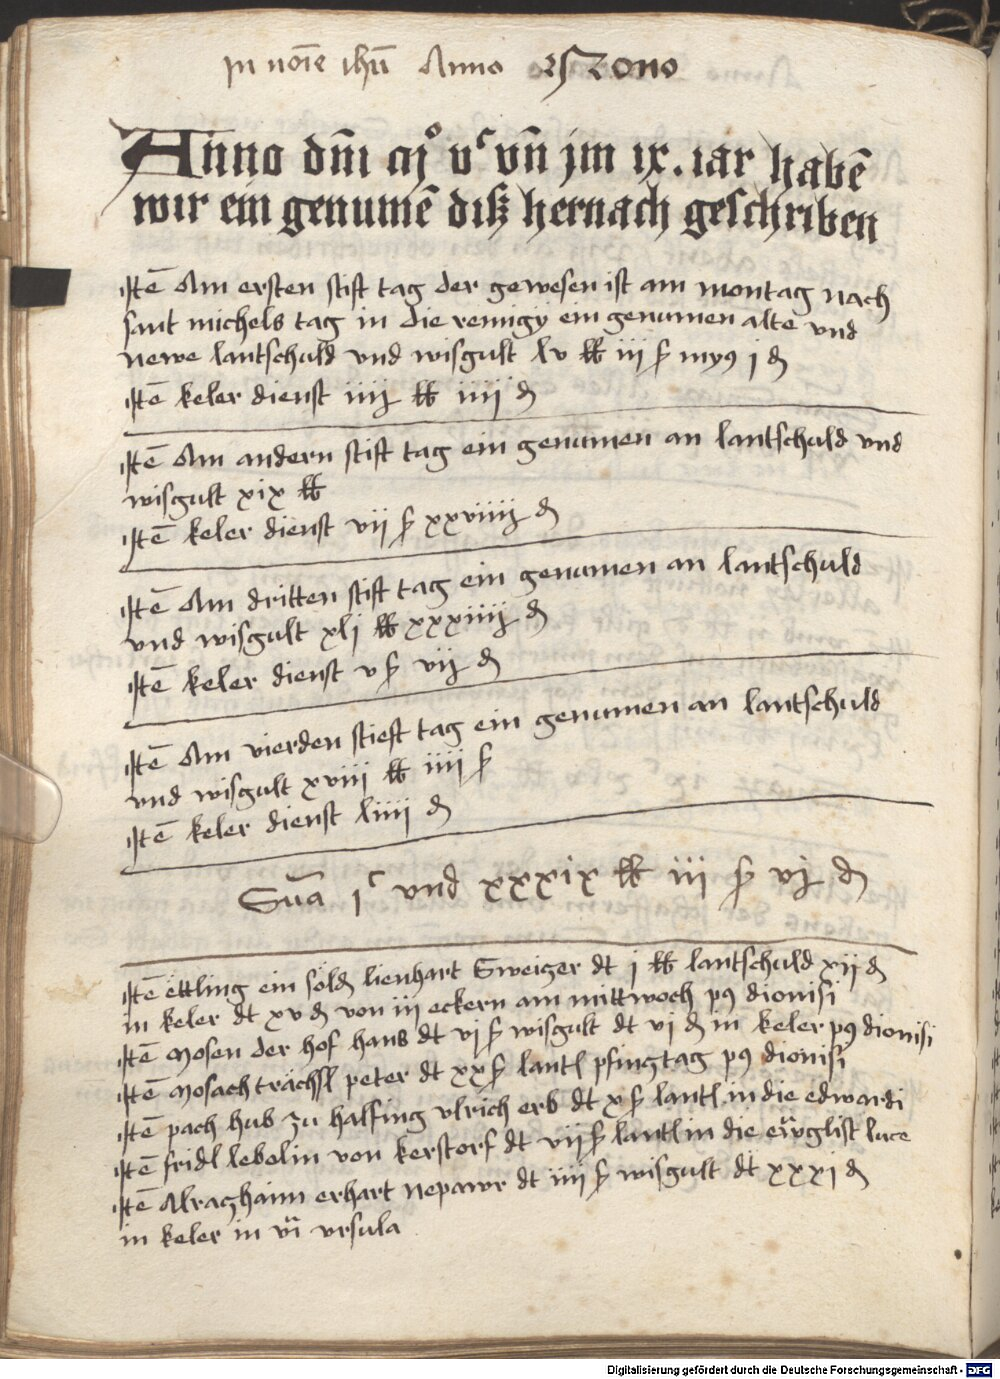 In noīe ihū Anno 1509no
Anno dn̄i mͦ vͨ vn̄ jm ix. iar habē
wir ein genumē diß hernach geschriben
Itē Am ersten stift tag der gewesen ist am montag nach
sant michels tag in die remigÿ ein genumen alte vnd
newe lantschuld vnd wisgult lv ℔ iii ß myꝯ j ₰
Itē keler dienst iiij ℔ iiij ₰
Itē Am andern stift tag ein genumen an lantschuld vnd
wisgult xix ℔
Itē keler dienst vij ß xxviiij ₰
Itē Am dritten stift tag ein genumen an lantschuld
vnd wisgult xlj ℔ xxxiiij ₰
Itē keler dienst v ß vij ₰
Itē Am vierden stieft tag ein genumen an lantschuld
vnd wisgult xviii ℔ iiii ß
Itē keler dienst liiij ₰
Sūa jͨ vnd xxxix ℔ iii ß vj ₰
Itē ettling ein söldn lienhart Sweiger dt j ℔ lantschuld xij ₰
in keler dt xv ₰ von iij eckern am mittwoch pꝯ dionisi
Itē Mosen der hof hans dt vj ß wisgult dt vj ₰ in keler pꝯ dionisi
Itē Mosach trächsl peter dt xx ß lantl pfingtag pꝯ dionisi
Itē pach hub zu halfing vlrich erb dt x ß lantl in die edwardi
Itē fridl lebolin von kerstorf dt vij ß lantl in die ewglist luce
Itē Alraghaim erhart nepawr dt iiii ß wisgult dt xxxj ₰
in keler in vi vrsula
Digitalisierung gefördert durch die Deutsche Forschungsgemeinschaft - DFG